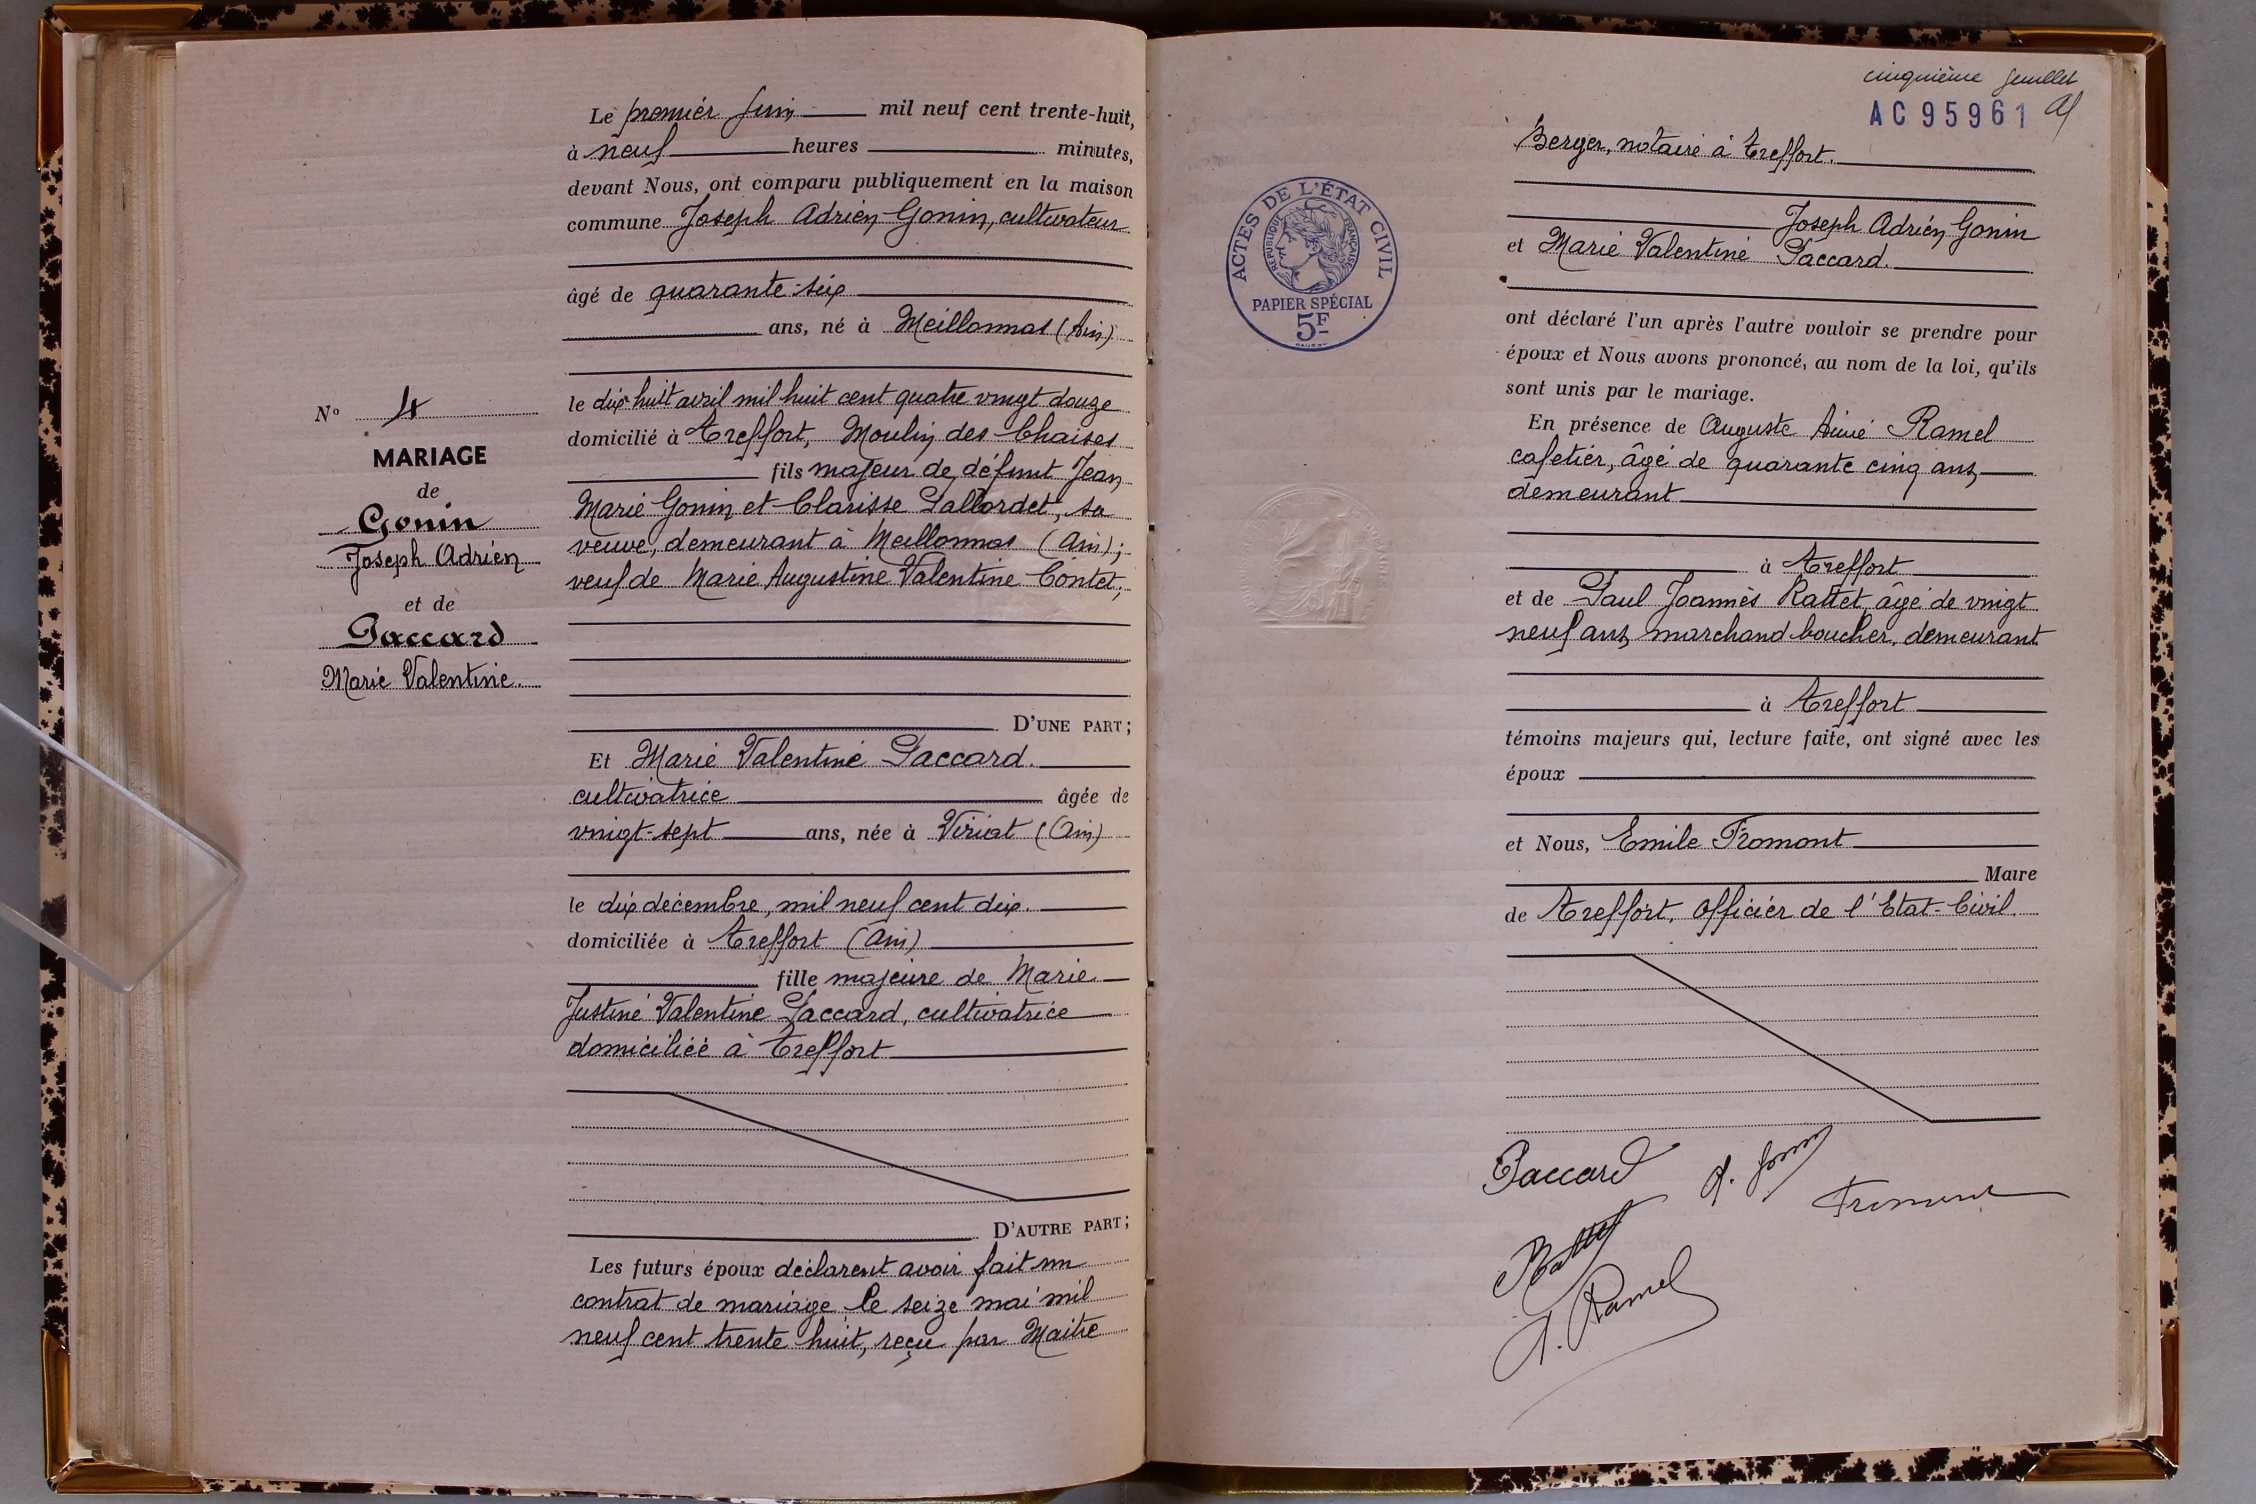 Le premier Juin mil neuf cent trente-huit,
à neuf heures minutes,
devant Nous, ont comparu publiquement en la maison
commune Joseph Adrien Gonin, cultivateur
âgé de quarante-six
ans, né à Meillonnas (Ain)
le dix huit avril mil huit cent quatre vingt douze
domicilié à Treffort, Moulin des Chaises
fils majeur de défunt Jean
Marie Gonin et Clarisse Pallordet, sa
veuve, demeurant à Meillonnas (Ain);
veuf de Marie Augustine Valentine Contet;
D'UNE PART;
Et Marie Valentine Paccard.
cultivatrice âgée de
vingt-sept ans, née à Viriat (Ain)
le dix décembre, mil neuf cent dix.
domiciliée à Treffort (Ain)
fille majeure de Marie
Justine Valentine Paccard, cultivatrice
domiciliée à Treffort
D'AUTRE PART;
Les futurs époux déclarent avoir fait un
contrat de mariage le seize mai mil
neuf cent trente huit, reçu par Maitre
N° 4
MARIAGE
de
Gonin
Joseph Adrien
et de
Paccard
Marie Valentine.
cinquième feuillet
AC95961
Berger, notaire à Treffort.
Joseph Adrien Gonin
et Marie Valentine Paccard.
ont déclaré l'un après l'autre vouloir se prendre pour
époux et Nous avons prononcé, au nom de la loi, qu'ils
sont unis par le mariage.
En présence de Auguste Aimé Ramel
cafetier, âgé de quarante cinq ans
demeurant
à Treffort
et de Paul Joannès Rattet, âgé de vingt
neuf ans, marchand boucher, demeurant
à Treffort
témoins majeurs qui, lecture faite, ont signé avec les
époux
et Nous, Emile Fromont
Maire
de Treffort, officier de l'Etat-Civil.
Paccard
A. Gonin
Fromont
Rattet
A. Ramel
ACTES DE L'ÉTAT CIVIL
RÉPUBLIQUE FRANÇAISE
PAPIER SPÉCIAL
5F